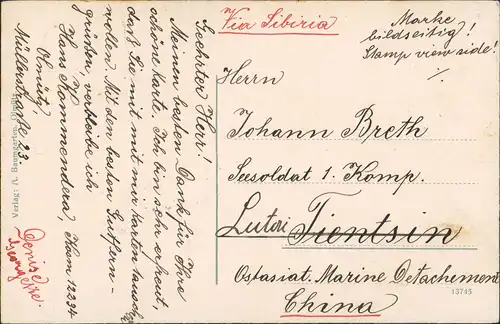 Via Sibiria
Marke
bildseitig!
Stamp view side!
Herrn
Johann Breth
Seesoldat 1. Komp.
Lutori Tientsin
Ostasiat. Marine Detachement
China
13745
Geehrter Herr!
Meinen besten Dank für Ihre
schöne Karte. Ich bin sehr erfreut,
daß Sie mit mir karten tauschen
wollen. Mit den besten
grüßen, verbleibe ich
Hans Kommendera, 12334
Olmütz,
Müllerstraße 23.
Verlag: A. Olmütz
Denise